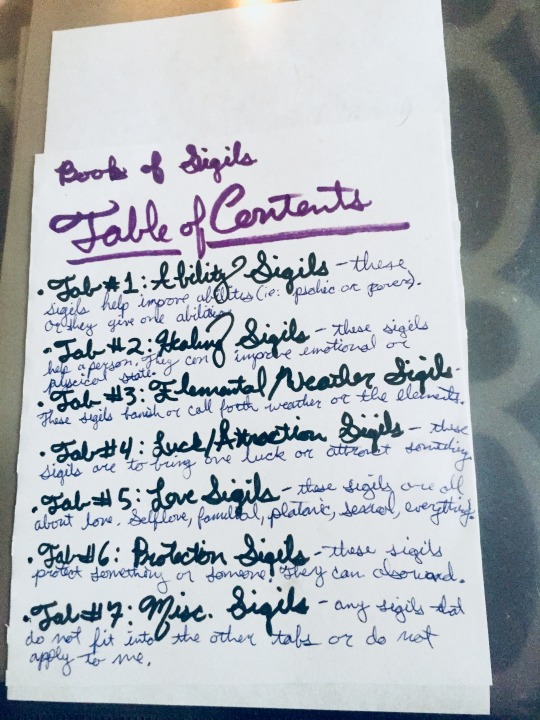 Book of Sigils
Table of Contents
• Tab #1: Ability Sigils - these
sigils help improve abilities (ie: psychic or power).
Or they give one abilities.
• Tab #2: Healing Sigils - these sigils
help a person. They can improve emotional or
physical state.
• Tab #3: Elemental/Weather Sigils-
These sigils banish or call forth weather or the elements.
• Tab #4: Luck/Attraction Sigils - these
sigils are to bring one luck or attract something.
• Tab #5: Love Sigils - these sigils are all
about love. Selflove, familial, platonic, sexual, everything.
• Tab #6: Protection Sigils - these sigils
protect something or someone. They can also ward.
• Tab #7: Misc. Sigils - any sigils that
do not fit into the other tabs or do not
apply to me.